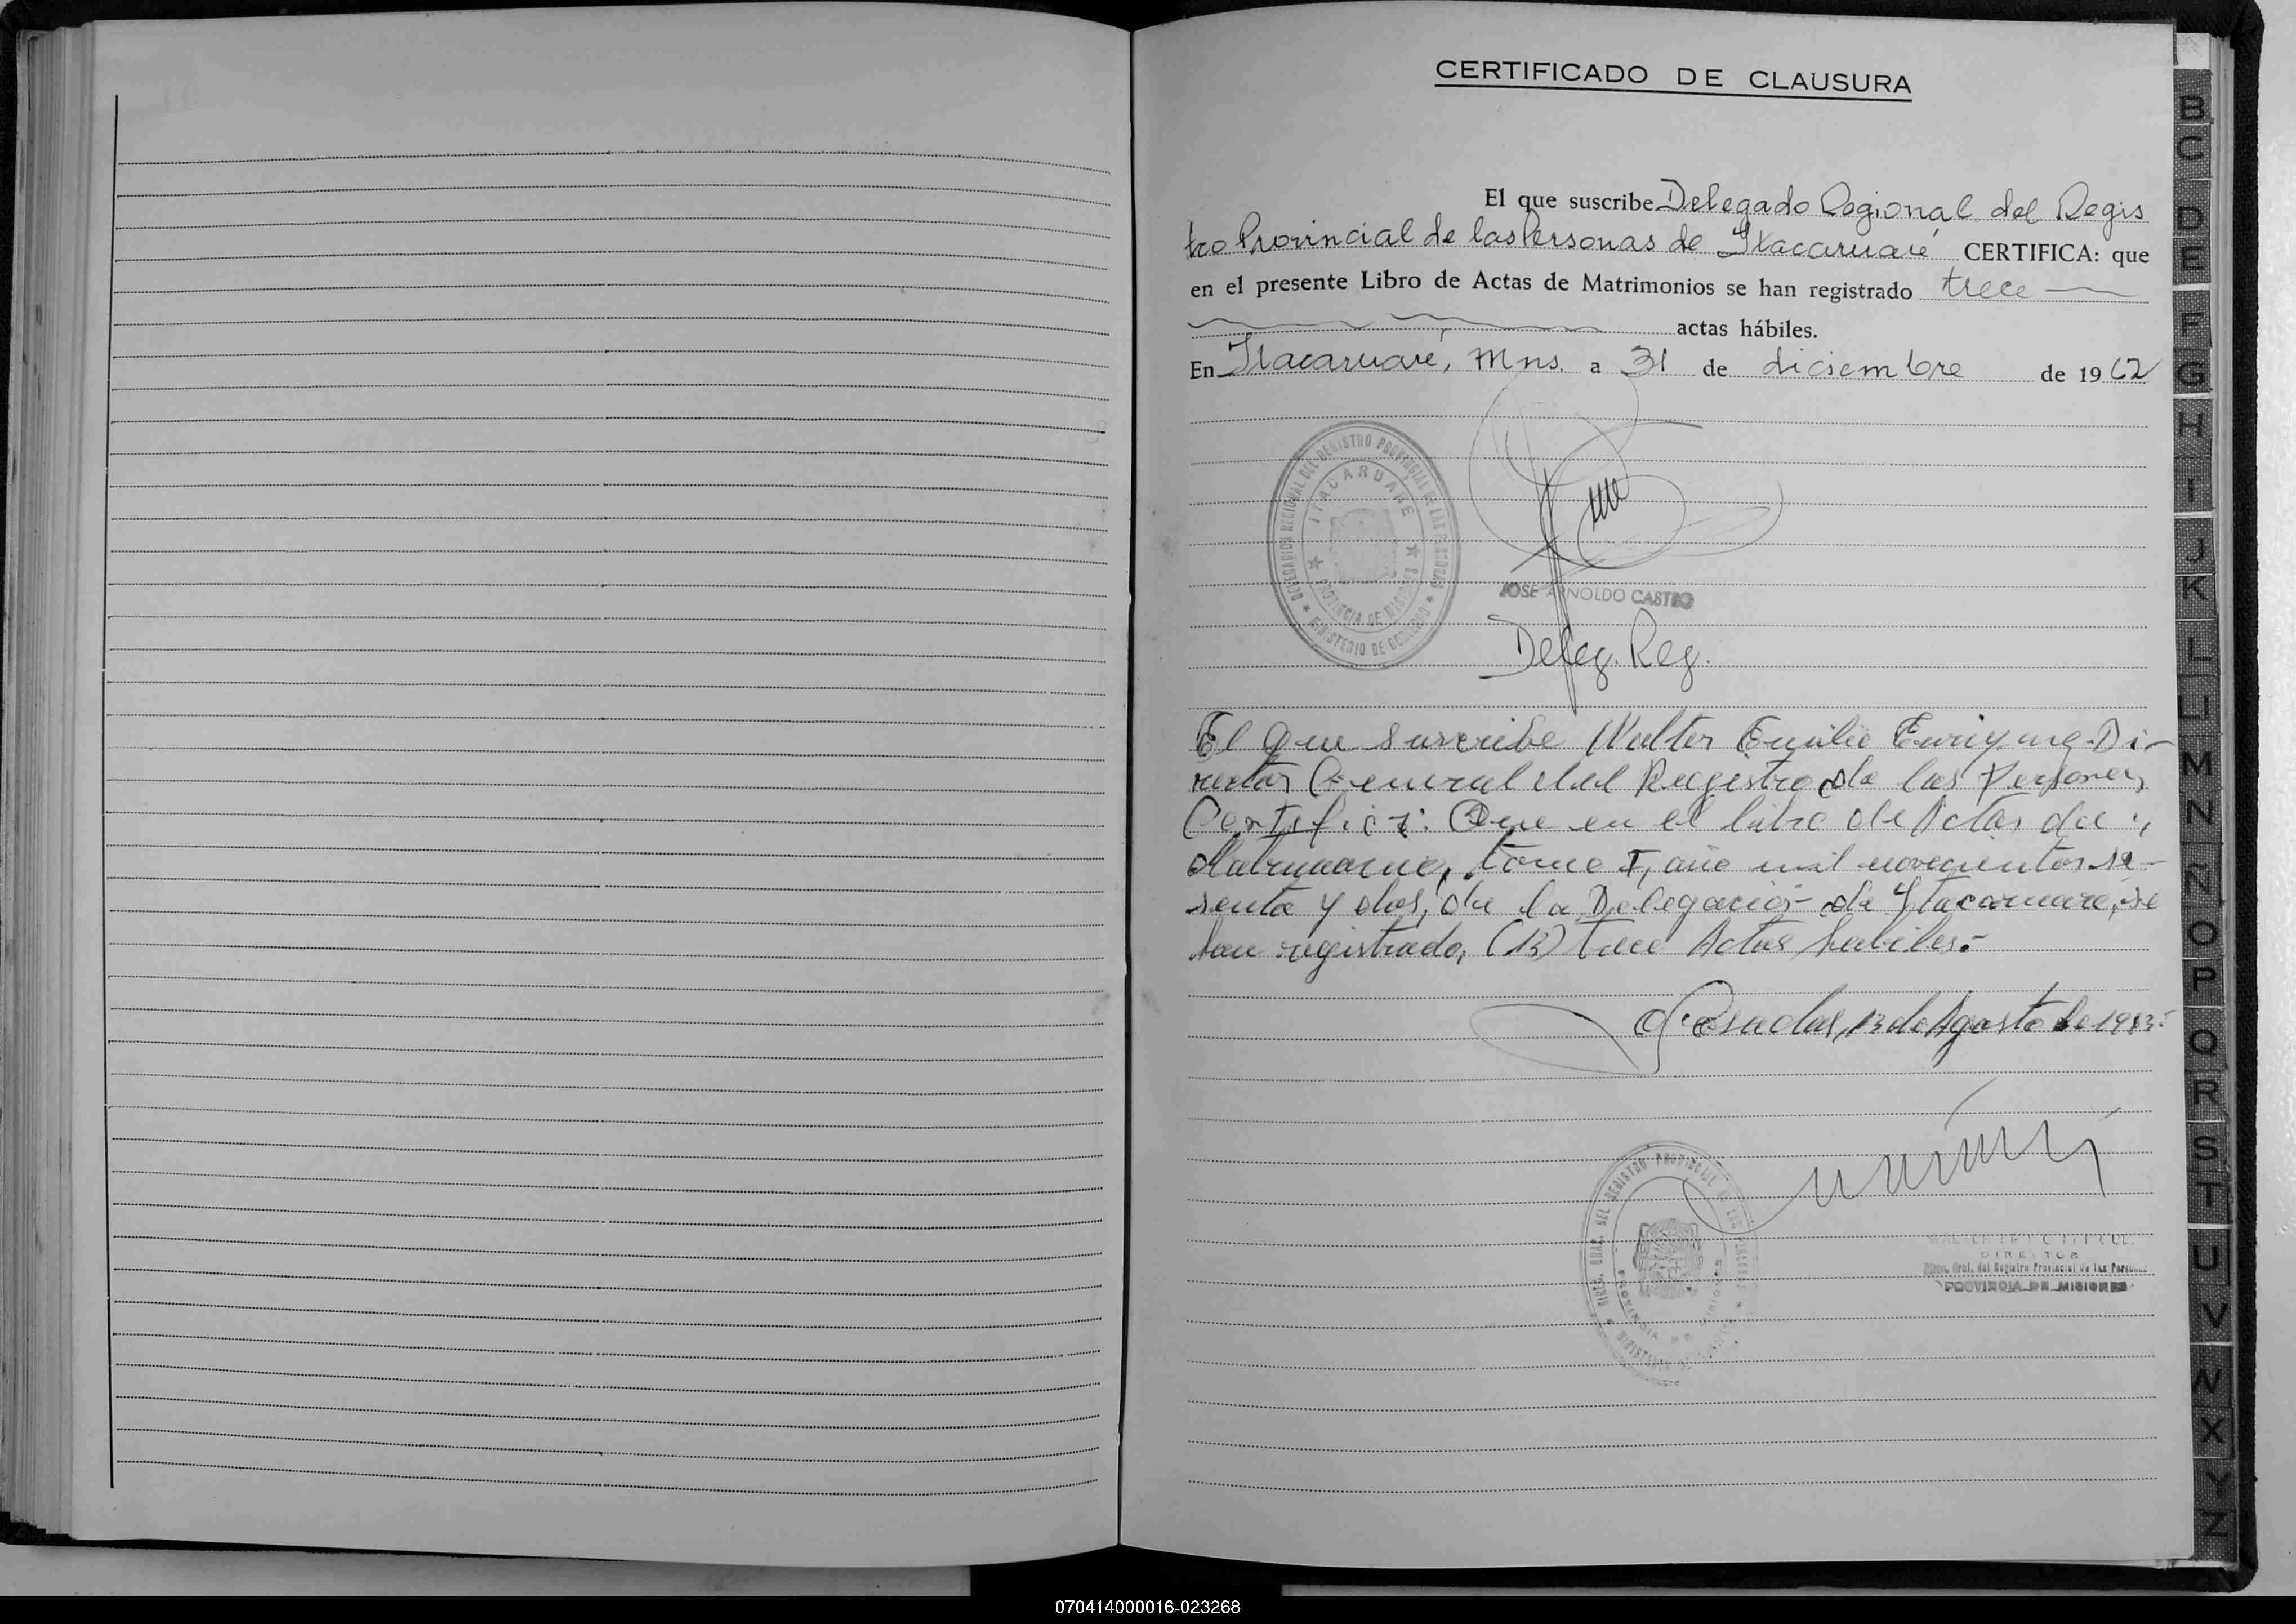 CERTIFICADO DE CLAUSURA
El que suscribe Delegado Regional del Regis
tro Provincial de las Personas de Itacaruaré CERTIFICA: que
en el presente Libro de Actas de Matrimonios se han registrado trece
actas hábiles.
En Itacaruaré, Mns. a 31 de diciembre de 1962
DELEGACION REGIONAL DEL REGISTRO PROVINCIAL DE LAS PERSONAS
ITACARUARE
PROVINCIA DE MISIONES
MINISTERIO DE GOBIERNO
JOSE ARNOLDO CASTRO
Deleg. Reg.
El que suscribe Walter Emilio Di-
rector General del Registro de las Personas,
Certifica: Que en el libro de Actas de
Matrimonio, tomo I, año mil novecientos se-
senta y dos, de la Delegación de Itacaruare, se
han registrado, (13) trece Actas habiles.-
Posadas, 13 de Agosto de 1983.-
DEL REGISTRO PROVINCIAL DE LAS PERSONAS
PROVINCIA DE MISIONES
DIRECTOR
Direc. Gral. del Registro Provincial de las Personas
PROVINCIA DE MISIONES
B
C
D
E
F
G
H
I
J
K
L
Ll
M
N
Ñ
O
P
Q
R
S
T
U
V
W
X
Y
Z
070414000016-023268